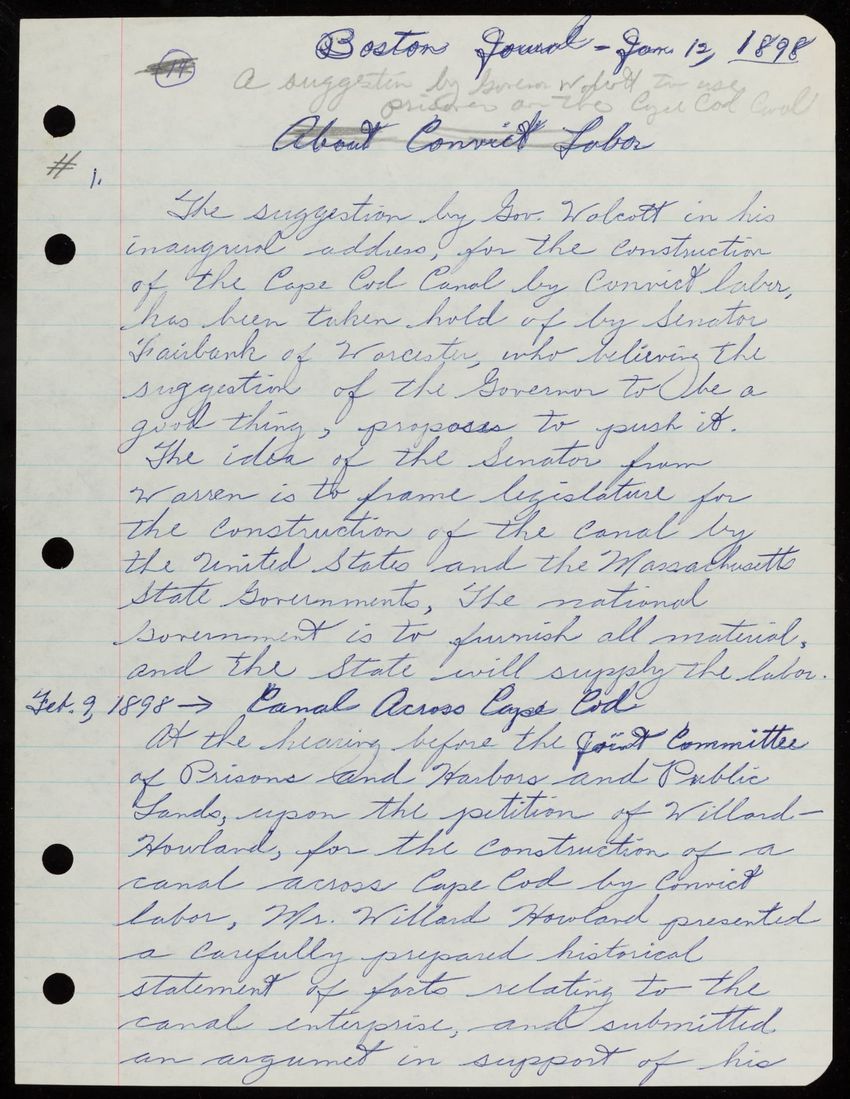 Boston Journal - Jan 12, 1898
14
A suggestion by Governor Wolcott to use
prisoners on the Cape Cod Canal
About Convict Labor
# 1.
The suggestion by Gov. Wolcott in his
inaugural address, for the construction
of the Cape Cod Canal by Convict labor,
has been taken hold of by Senator
Fairbank of Worcester, who believing the
suggestion of the Governor to be a
good thing, proposes to push it.
The idea of the Senator from
Warren is to frame legislature for
the construction of the canal by
the United States and the Massachusetts
State Governments, The national
Government is to furnish all material,
and the State will supply the labor.
Feb. 9, 1898 → Canal Across Cape Cod
At the hearing before the joint Committee
of Prisons and Harbors and Public
Lands, upon the petition of Willard-
Howland, for the construction of a
canal across Cape Cod by Convict
labor, Mr. Willard Howland presented
a carefully prepared historical
statement of facts relating to the
canal enterprise, and submitted
an argumet in support of his